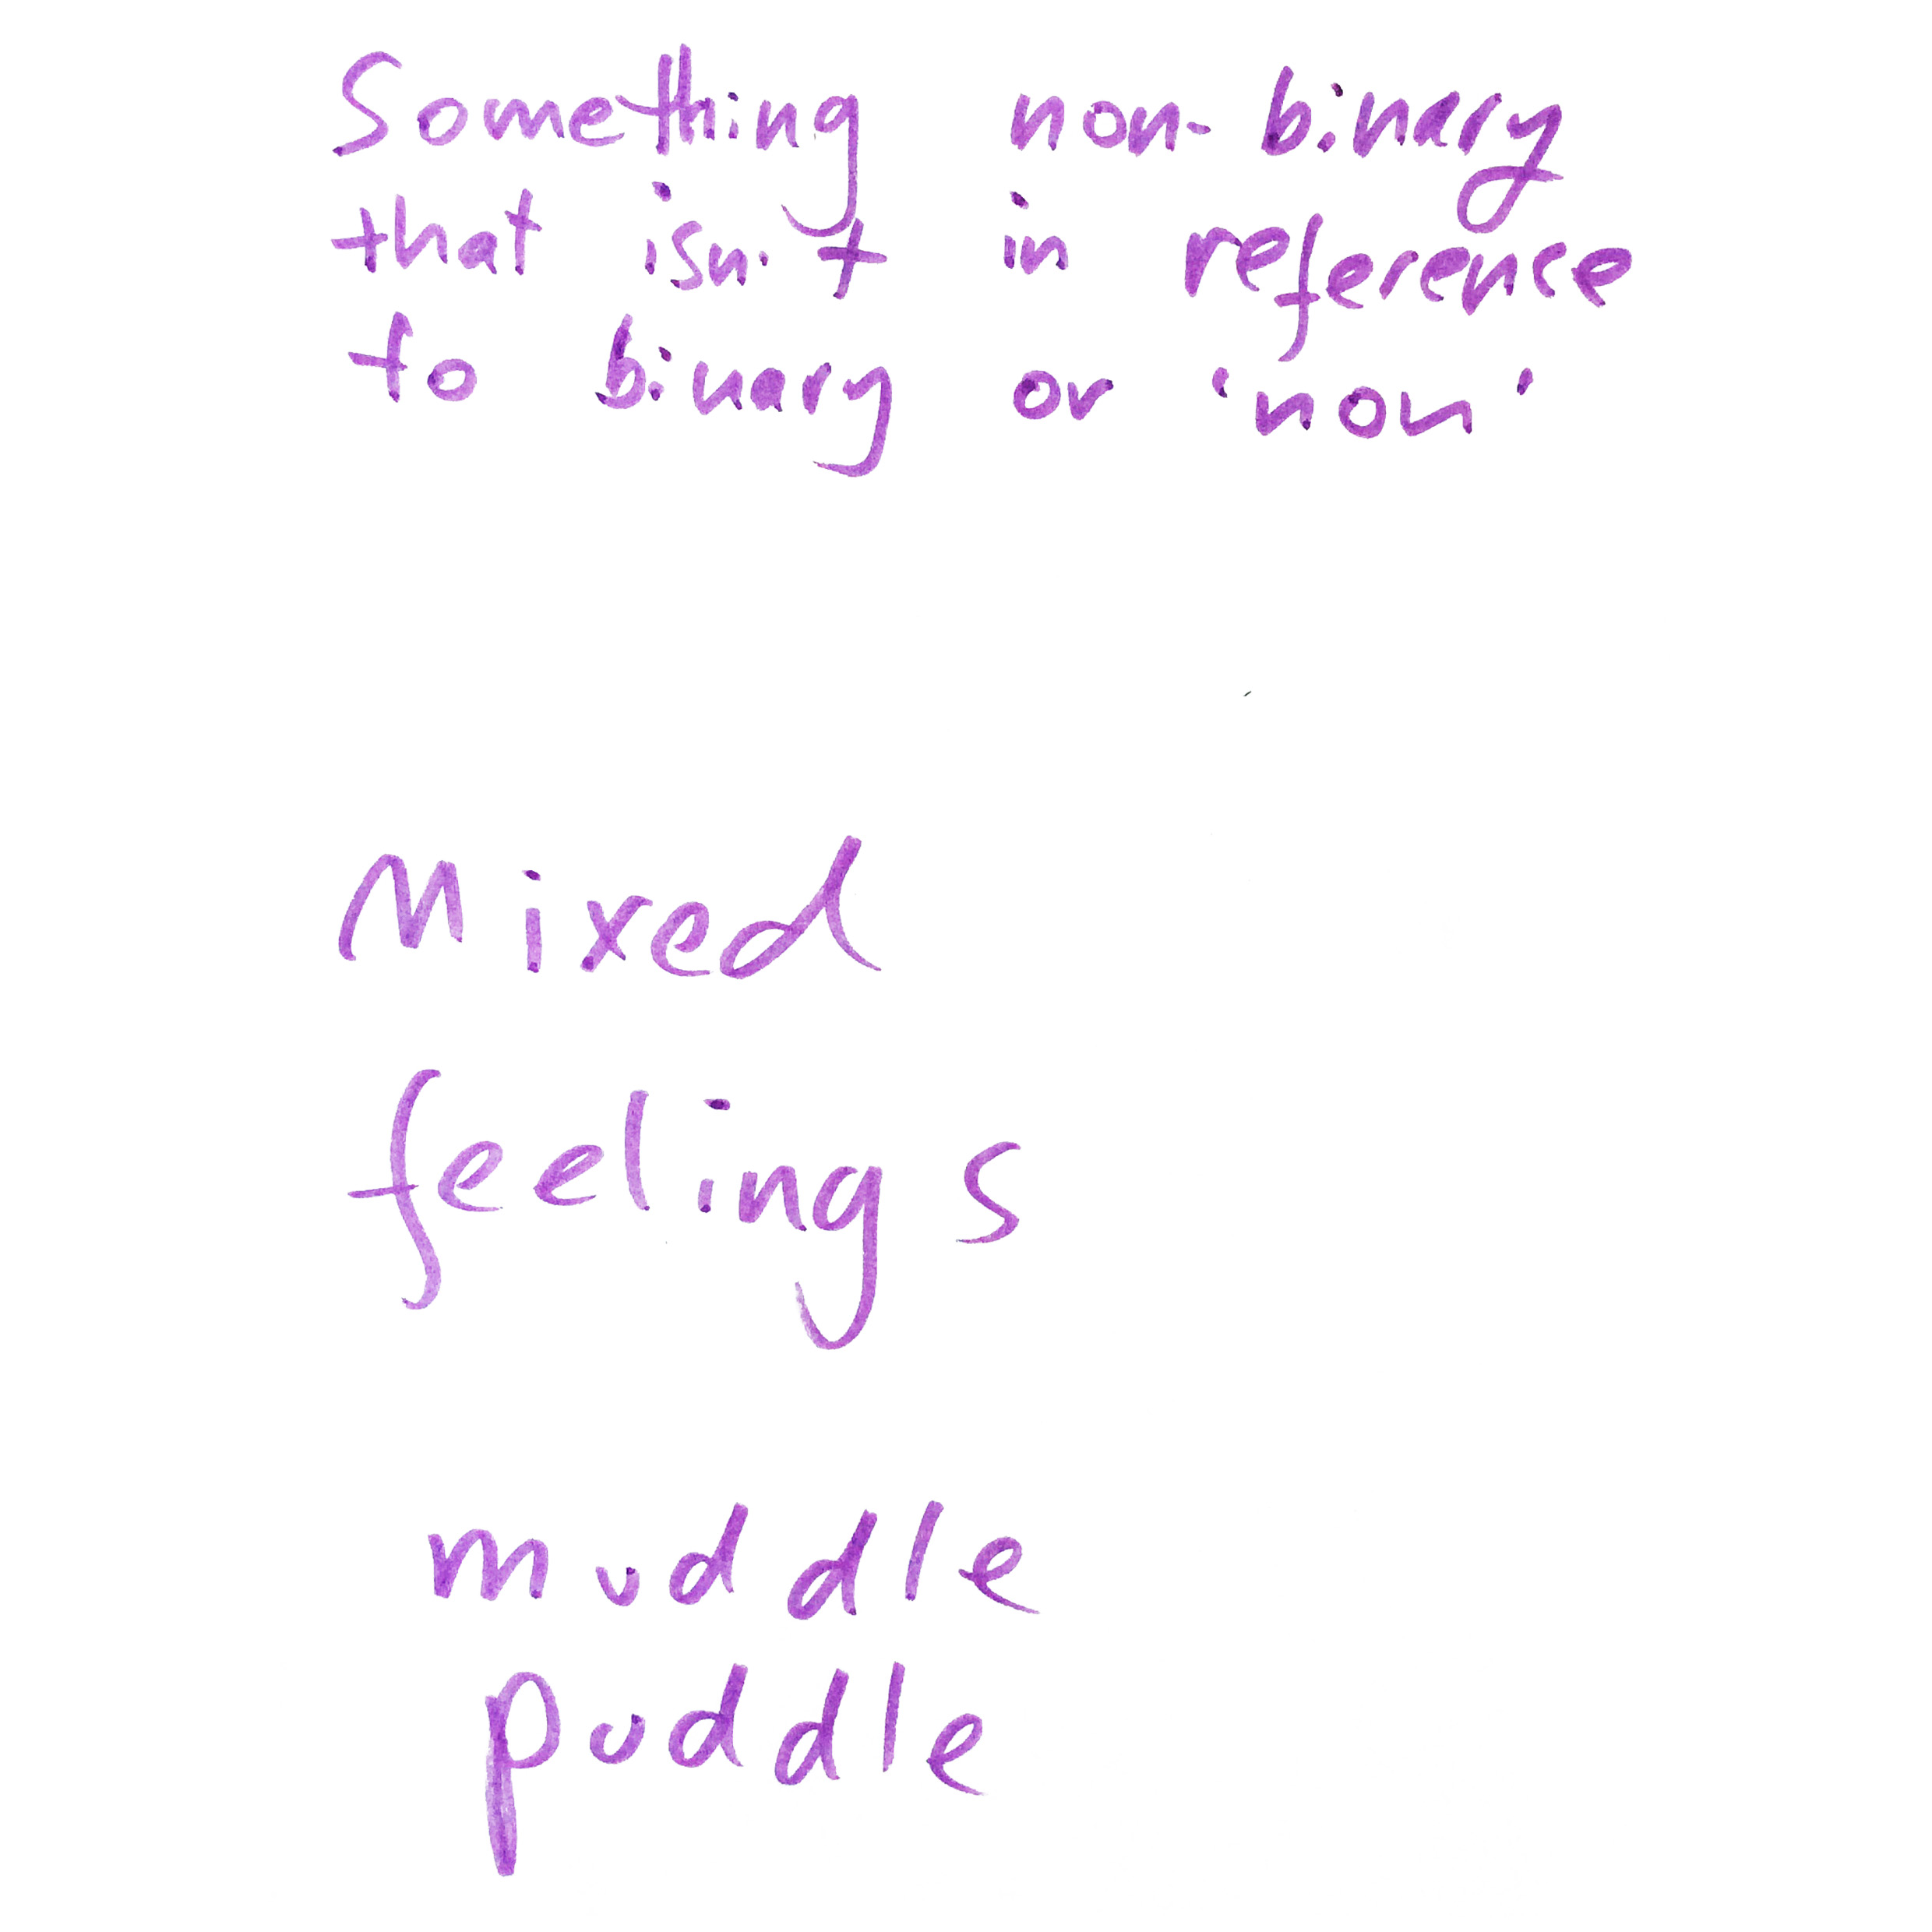 Something non-binary
that isn't in reference
to binary or 'non'
Mixed
feelings
muddle
puddle